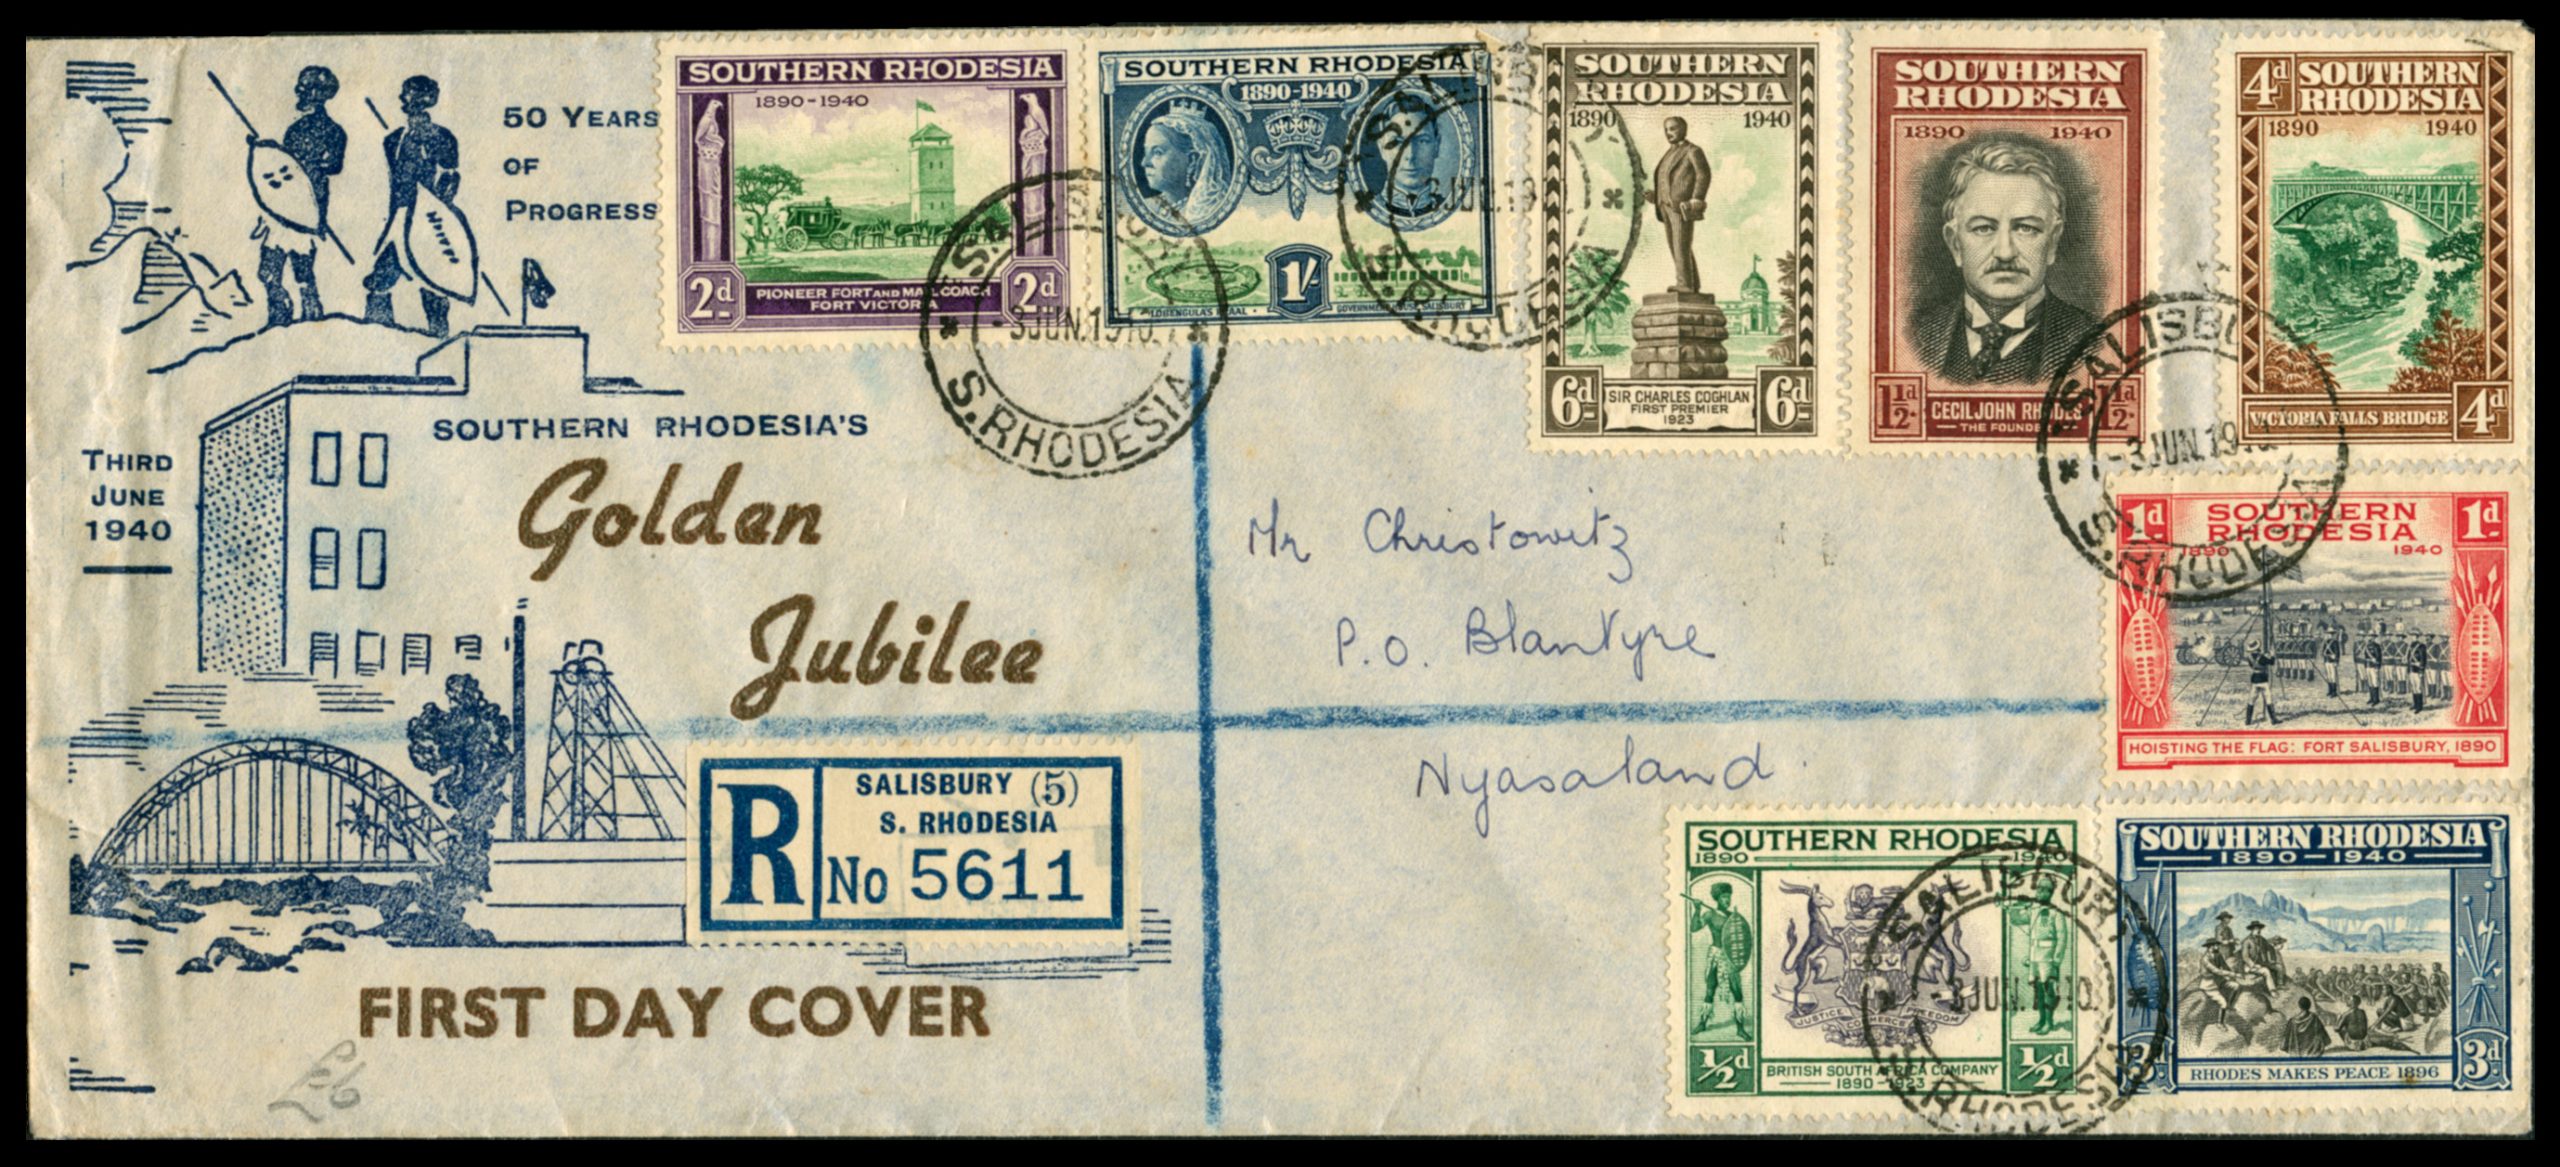 50 YEARS
OF
PROGRESS
SOUTHERN RHODESIA
1890-1940
2d 2d
PIONEER FORT AND MAIL COACH
FORT VICTORIA
SOUTHERN RHODESIA
1890-1940
1/-
LOBENGULA'S KRAAL
GOVERNMENT HOUSE SALISBURY
SOUTHERN
RHODESIA
1890 1940
6d 6d
SIR CHARLES COGHLAN
FIRST PREMIER
1923
SOUTHERN
RHODESIA
1890 1940
1½d 1½d
CECIL JOHN RHODES
THE FOUNDER
4d SOUTHERN
RHODESIA
1890 1940
VICTORIA FALLS BRIDGE 4d
SALISBURY
-3 JUN.1940.
S.RHODESIA
SALISBURY
-3 JUN.19
S.RHODESIA
SALISBURY
-3 JUN.194
S.RHODESIA
THIRD
JUNE
1940
SOUTHERN RHODESIA'S
Golden
Jubilee
Mr Christowitz
P.O. Blantyre
Nyasaland.
1d SOUTHERN 1d
RHODESIA
1890 1940
HOISTING THE FLAG: FORT SALISBURY, 1890
R
SALISBURY (5)
S. RHODESIA
No 5611
SOUTHERN RHODESIA
1890 1940
JUSTICE COMMERCE FREEDOM
½d ½d
BRITISH SOUTH AFRICA COMPANY
1890-1923
SOUTHERN RHODESIA
1890-1940
3d 3d
RHODES MAKES PEACE 1896
SALISBURY
-3 JUN.1940.
S.RHODESIA
FIRST DAY COVER